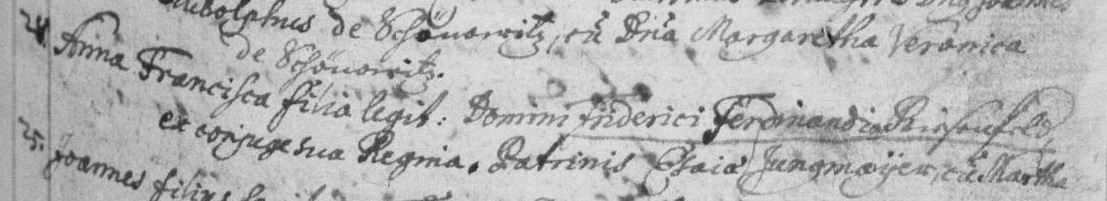 Rudolphus de Schönowitz, cū Dnā Margaretha Veronica
de Schönowitz.
24. Anna Francisca filia legit: Domini Friderici Ferdinandi a Riesenfeld
ex conjuge sua Regina. Patrinis Esaia Jungmaÿer, cū Martha
25. Joannes filius